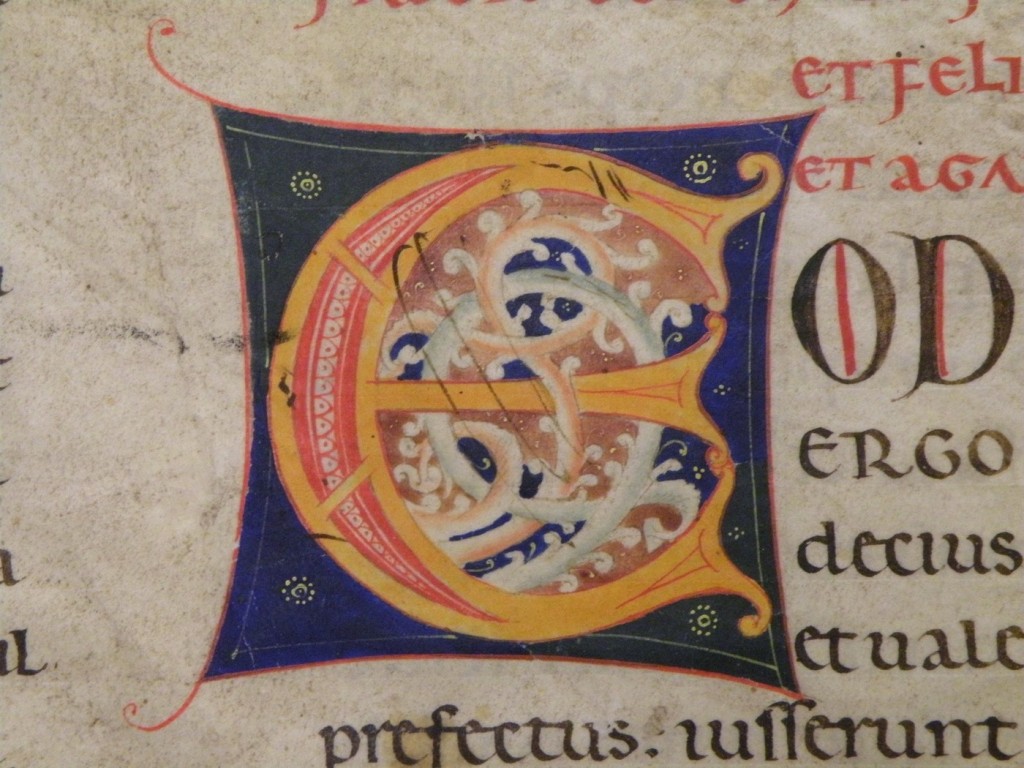 ET FELI
ET AGA
EOD
ERGO
decius
et uale
prefectus. iusserunt